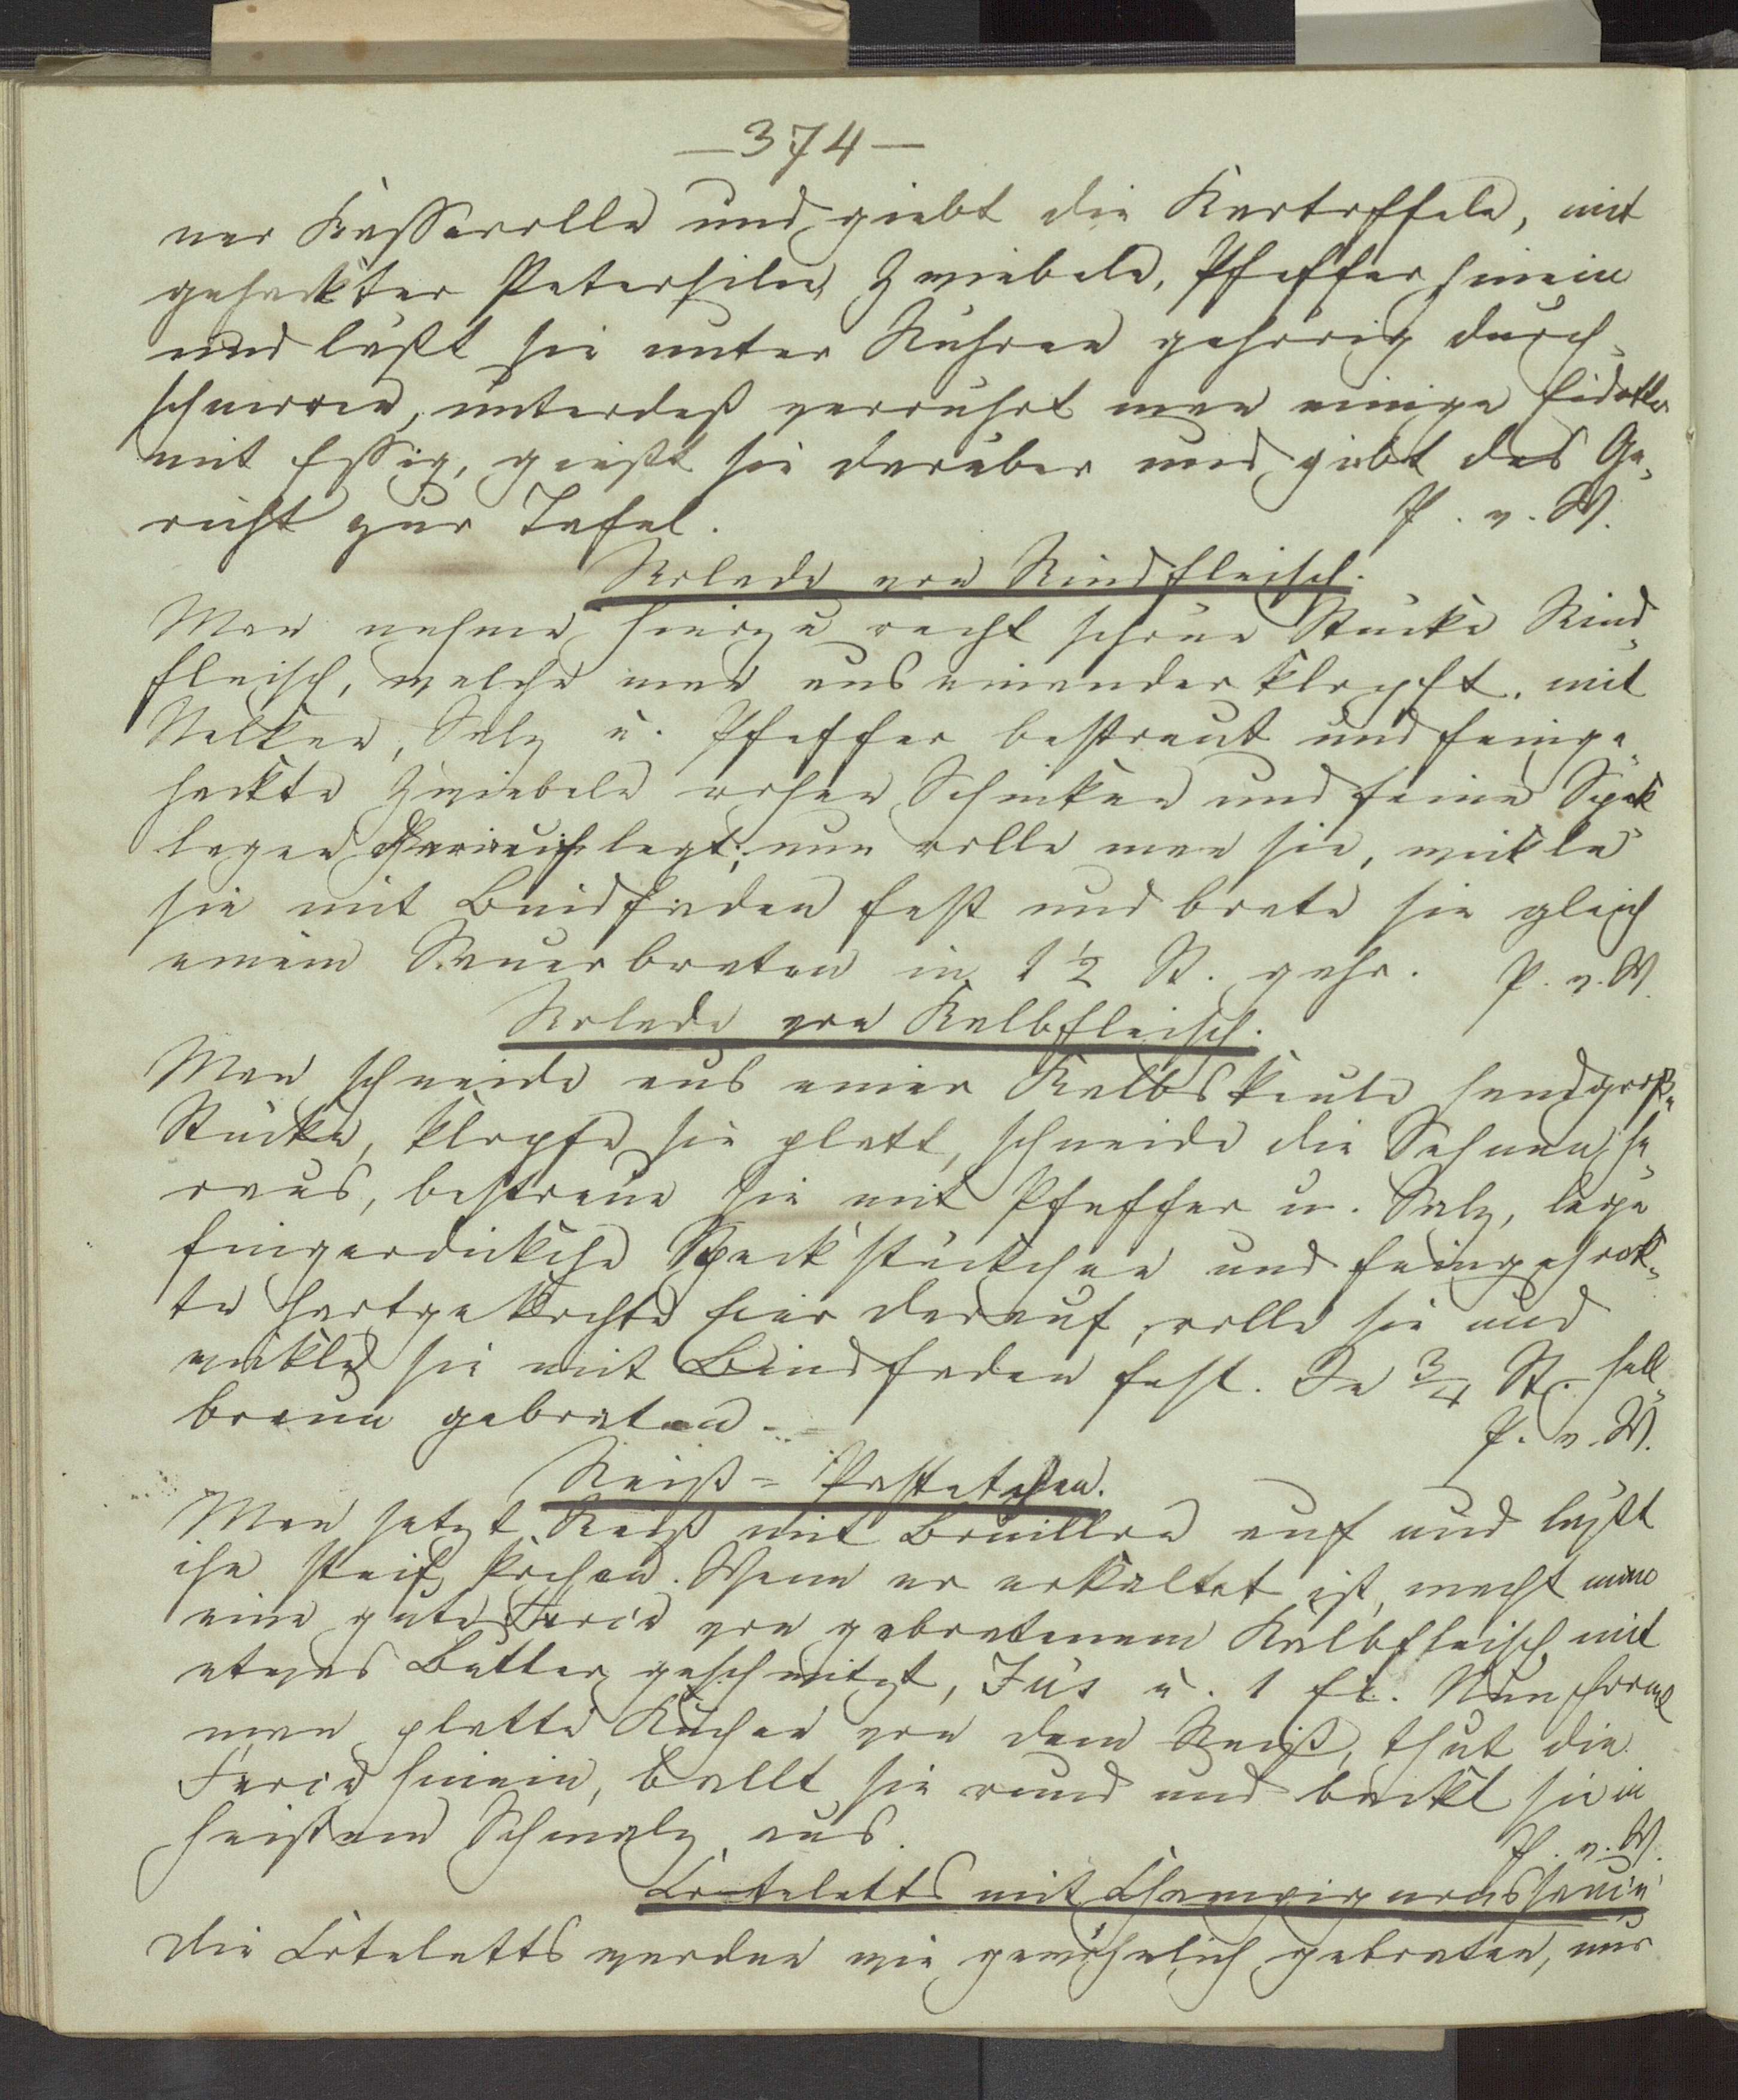 —374—
ner Kasserolle und giebt die Kartoffeln, mit
gehackter Petersilie, Zwiebeln, Pfeffer hinein
und läßt sie unter Rühren gehörig durch-
schmoren, unterdeß verrührt man einige Eidotter
mit Essig, gießt sie darüber und giebt das Ge-
richt zur Tafel. P. v. W.
Rolade von Rindfleisch.
Man nehme hierzu recht schöne Stücke Rind-
fleisch, welche man auseinander klopft, mit
Nelken, Salz u. Pfeffer bestreut und feinge-
hackte Zwiebeln rohen Schinken und feine Speck
lagen legt; nun rolle man sie, wickle
sie mit Bindfaden fest und brate sie gleich
einem Sauerbraten in 1 1/2 St. gahr. P. v. W.
Rolade von Kalbfleisch.
Man schneide aus einer Kalbskeule handgroße
Stücke, klopfe sie platt, schneide die Sehnen he-
raus, bestreue sie mit Pfeffer u. Salz, lege
fingerdicke Speckstückchen und feingehack-
te hartgekochte Eier darauf, rolle sie und
wickle sie mit Bindfaden fest. In 3/4 St. hell-
braun gebraten. P. v. W.
Reiß-Pastetchen.
Man setzt Reiß mit Bouillon auf und läßt
ihn steif kochen. Wenn er erkaltet ist, macht man
eine gute Farce von gebratenem Kalbfleisch mit
etwas Butter geschwitzt, Jus u. 1 Ei. Nun formt
man platte Kuchen von dem Reiß, thut die
Farce hinein, ballt sie rund und backt sie in
heißem Schmalz aus. P. v. W.
Coteletts mit Champignonssauce
Die Coteletts werden wie gewöhnlich gebraten, nur